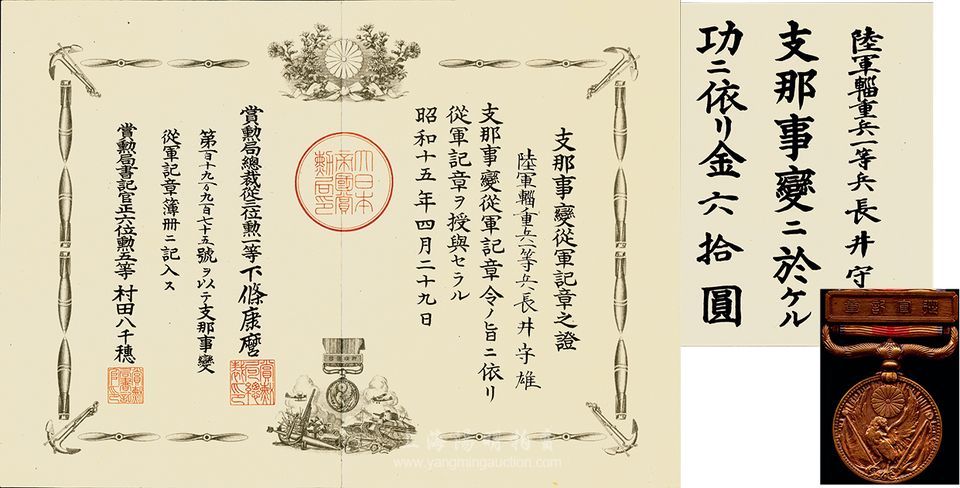 支那事變從軍記章之證
陸軍輜重兵一等兵長井守雄
支那事變從軍記章令ノ旨ニ依リ
從軍記章ヲ授與セラル
昭和十五年四月二十九日
大日本
帝國賞
勳局印
賞勲局總裁從三位勲一等下條康麿
第百十九万九百七十五號ヲ以テ支那事變
從軍記章簿册ニ記入ス
賞勲局書記官正六位勲五等村田八千穗
陸軍輜重兵一等兵長井守
支那事變ニ於ケル
功ニ依リ金六拾圓
章記軍從
上海陽明拍賣
www.yangmingauction.com